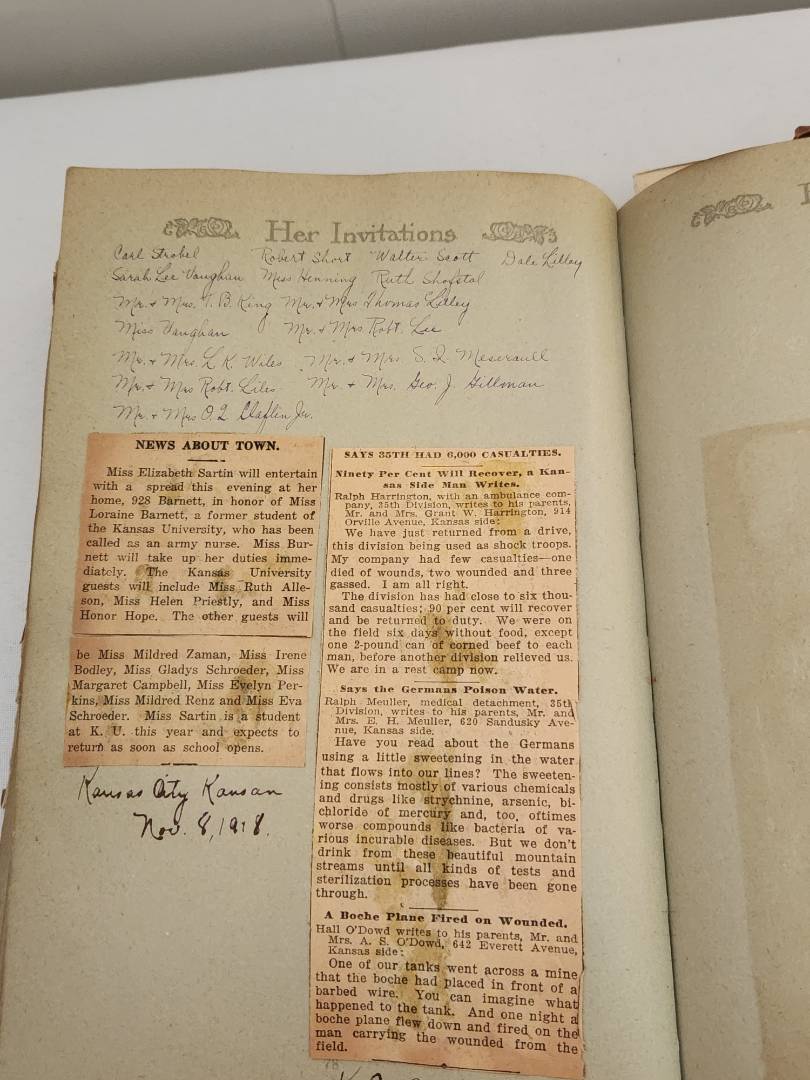 Her Invitations
Carl Strobel Robert Short Walter Scott Dale Lilley
Sarah Lee Vaughan Miss Henning Ruth Shofstal
Mr. & Mrs. T. B. King Mr. & Mrs Thomas Lilley
Miss Vaughan Mr. & Mrs Robt. Lee
Mr. & Mrs. L. K. Wiles Mr. & Mrs. S. I. Meseraull
Mr. & Mrs Robt. Liles Mr. & Mrs. Geo. J. Gillman
Mr. & Mrs O. Q. Claflin Jr.
NEWS ABOUT TOWN.
Miss Elizabeth Sartin will entertain
with a spread this evening at her
home, 928 Barnett, in honor of Miss
Loraine Barnett, a former student of
the Kansas University, who has been
called as an army nurse. Miss Bur-
nett will take up her duties imme-
diately. The Kansas University
guests will include Miss Ruth Alle-
son, Miss Helen Priestly, and Miss
Honor Hope. The other guests will
be Miss Mildred Zaman, Miss Irene
Bodley, Miss Gladys Schroeder, Miss
Margaret Campbell, Miss Evelyn Per-
kins, Miss Mildred Renz and Miss Eva
Schroeder. Miss Sartin is a student
at K. U. this year and expects to
return as soon as school opens.
Kansas City Kansan
Nov. 8, 1918.
SAYS 35TH HAD 6,000 CASUALTIES.
Ninety Per Cent Will Recover, a Kan-
sas Side Man Writes.
Ralph Harrington, with an ambulance com-
pany, 35th Division, writes to his parents,
Mr. and Mrs. Grant W. Harrington, 914
Orville Avenue, Kansas side:
We have just returned from a drive,
this division being used as shock troops.
My company had few casualties—one
died of wounds, two wounded and three
gassed. I am all right.
The division has had close to six thou-
sand casualties; 90 per cent will recover
and be returned to duty. We were on
the field six days without food, except
one 2-pound can of corned beef to each
man, before another division relieved us.
We are in a rest camp now.
Says the Germans Poison Water.
Ralph Meuller, medical detachment, 35th
Division, writes to his parents, Mr. and
Mrs. E. H. Meuller, 620 Sandusky Ave-
nue, Kansas side.
Have you read about the Germans
using a little sweetening in the water
that flows into our lines? The sweeten-
ing consists mostly of various chemicals
and drugs like strychnine, arsenic, bi-
chloride of mercury and, too, oftimes
worse compounds like bacteria of va-
rious incurable diseases. But we don't
drink from these beautiful mountain
streams until all kinds of tests and
sterilization processes have been gone
through.
A Boche Plane Fired on Wounded.
Hall O'Dowd writes to his parents, Mr. and
Mrs. A. S. O'Dowd, 642 Everett Avenue,
Kansas side:
One of our tanks went across a mine
that the boche had placed in front of a
barbed wire. You can imagine what
happened to the tank. And one night a
boche plane flew down and fired on the
man carrying the wounded from the
field.
78